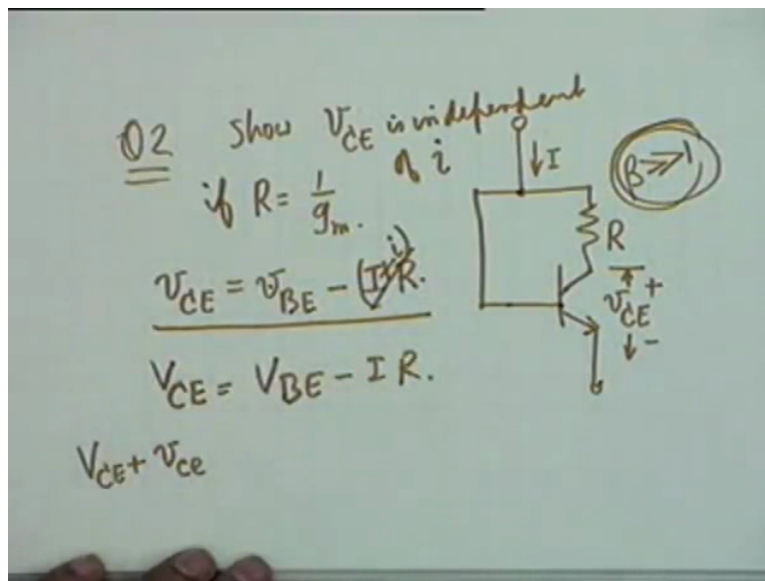 Q2 show V_CE is independent
of i
if R = 1/g_m.
v_CE = v_BE − (I+i)R.
V_CE = V_BE − I R.
V_CE + v_ce
I
β >> 1
R
v_CE
+
−